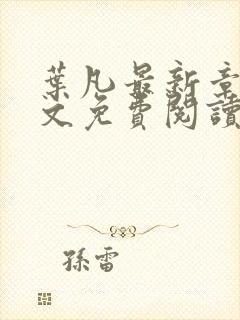 葉凡最新章
文免費閱讀
孫雷